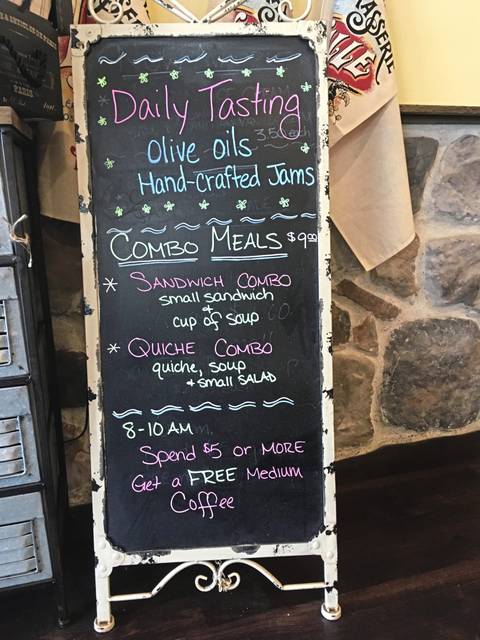 PARIS
BRASSERIE
Daily Tasting
Olive oils
3.50 each
Hand-crafted Jams
COMBO MEALS $9.00
* SANDWICH COMBO
small sandwich
+
cup of soup
* QUICHE COMBO
quiche, soup
+ small SALAD
8-10 AM
Spend $5 or MORE
Get a FREE Medium
Coffee